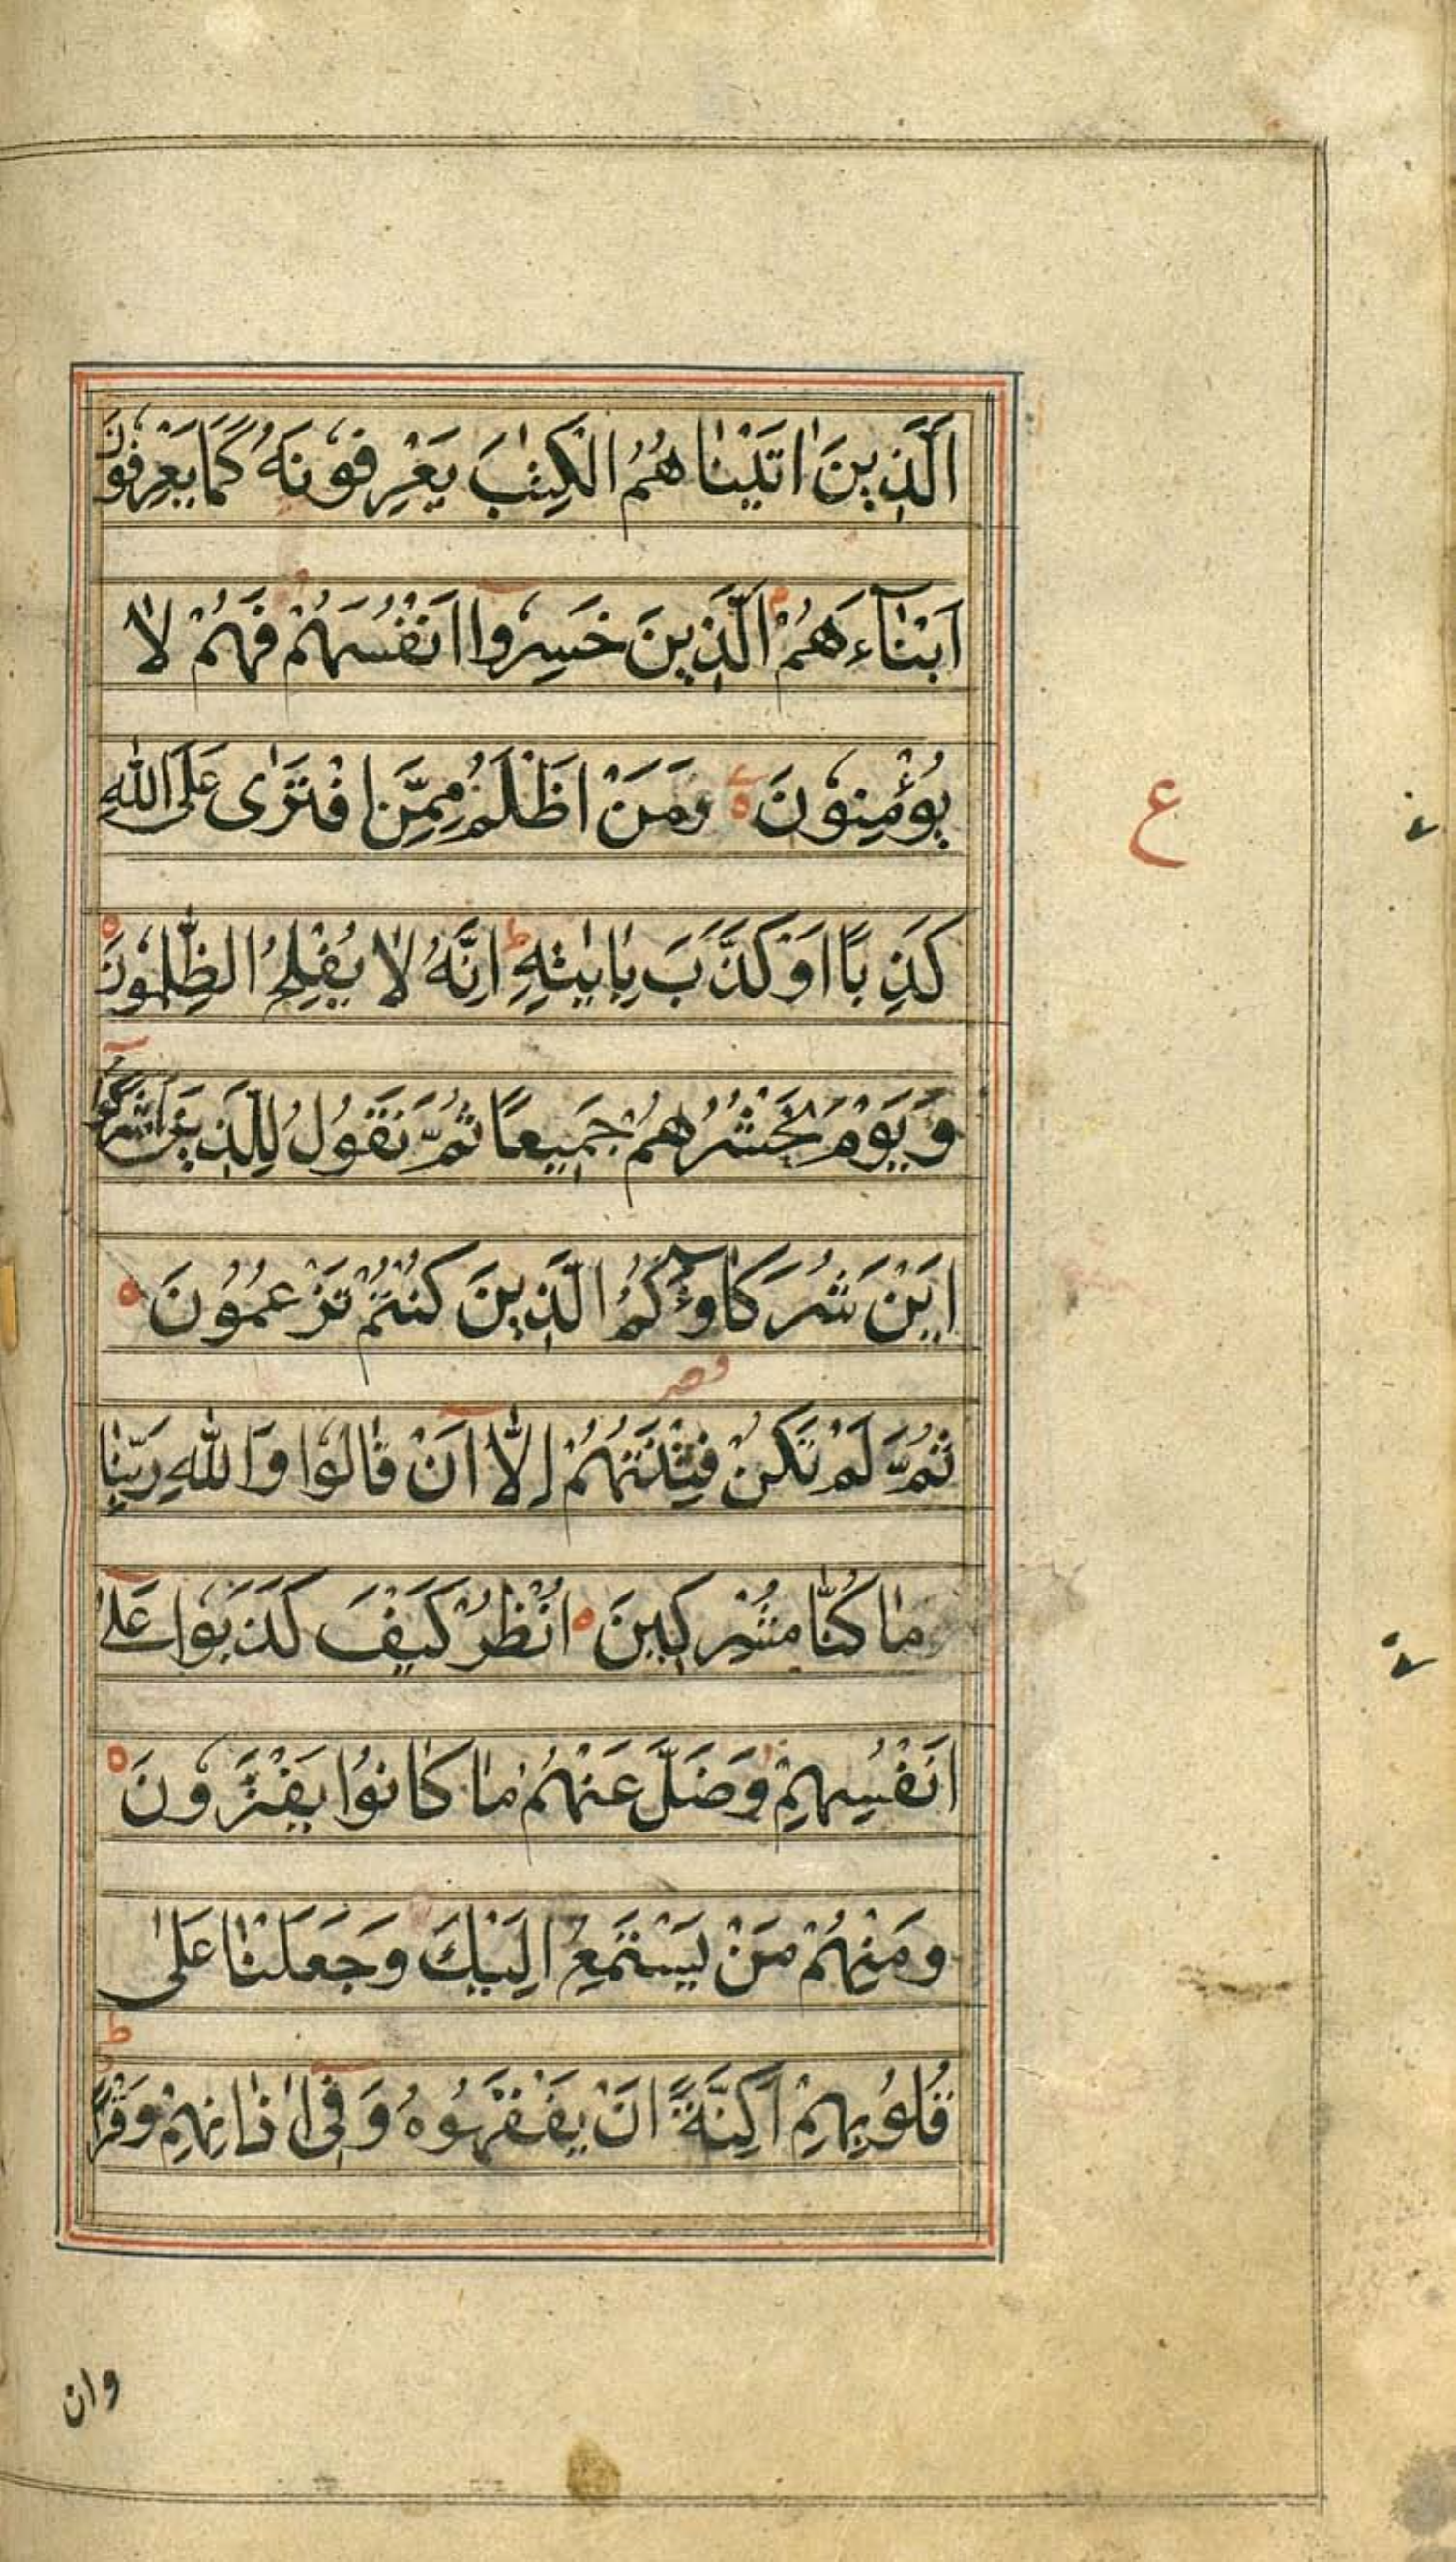 اَلَّذِينَ اٰتَيْنٰاهُمُ الْكِتٰبَ يَعْرِفُونَهُ كَمَا يَعْرِفُونَ
اَبْنٰآءَهُمْ م اَلَّذِينَ خَسِرُوا اَنْفُسَهُمْ فَهُمْ لٰا
يُؤْمِنُونَ ه ع وَمَنْ اَظْلَمُ مِمَّنِ افْتَرٰى عَلَى اللّٰهِ
كَذِبًا اَوْ كَذَّبَ بِاٰيٰتِهِ ط اِنَّهُ لٰا يُفْلِحُ الظّٰلِمُونَ ه
وَيَوْمَ نَحْشُرُهُمْ جَمِيعًا ثُمَّ نَقُولُ لِلَّذِينَ اَشْرَكُوا
اَيْنَ شُرَكَاؤُكُمُ الَّذِينَ كُنْتُمْ تَزْعُمُونَ ه
ثُمَّ لَمْ تَكُنْ فِتْنَتُهُمْ اِلّٰا اَنْ قٰالُوا وَاللّٰهِ رَبِّنٰا
مٰا كُنّٰا مُشْرِكِينَ ه اُنْظُرْ كَيْفَ كَذَبُوا عَلٰى
اَنْفُسِهِمْ وَضَلَّ عَنْهُمْ مٰا كٰانُوا يَفْتَرُونَ ه
وَمِنْهُمْ مَنْ يَسْتَمِعُ اِلَيْكَ وَجَعَلْنٰا عَلٰى
قُلُوبِهِمْ اَكِنَّةً اَنْ يَفْقَهُوهُ وَفِي اٰذٰانِهِمْ وَقْرًا ط
ع
وان